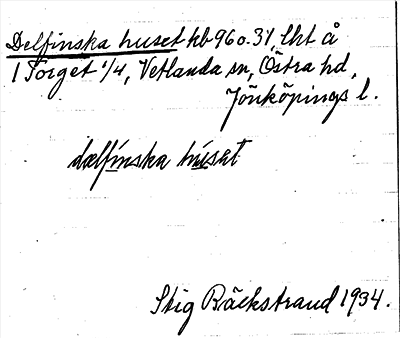 Delfinska huset kb 96 o. 31, lht å
1 Torget 1/4, Vetlanda sn, Östra hd,
Jönköpings l.
dælfinska húsat
Stig Bäckstrand 1934.